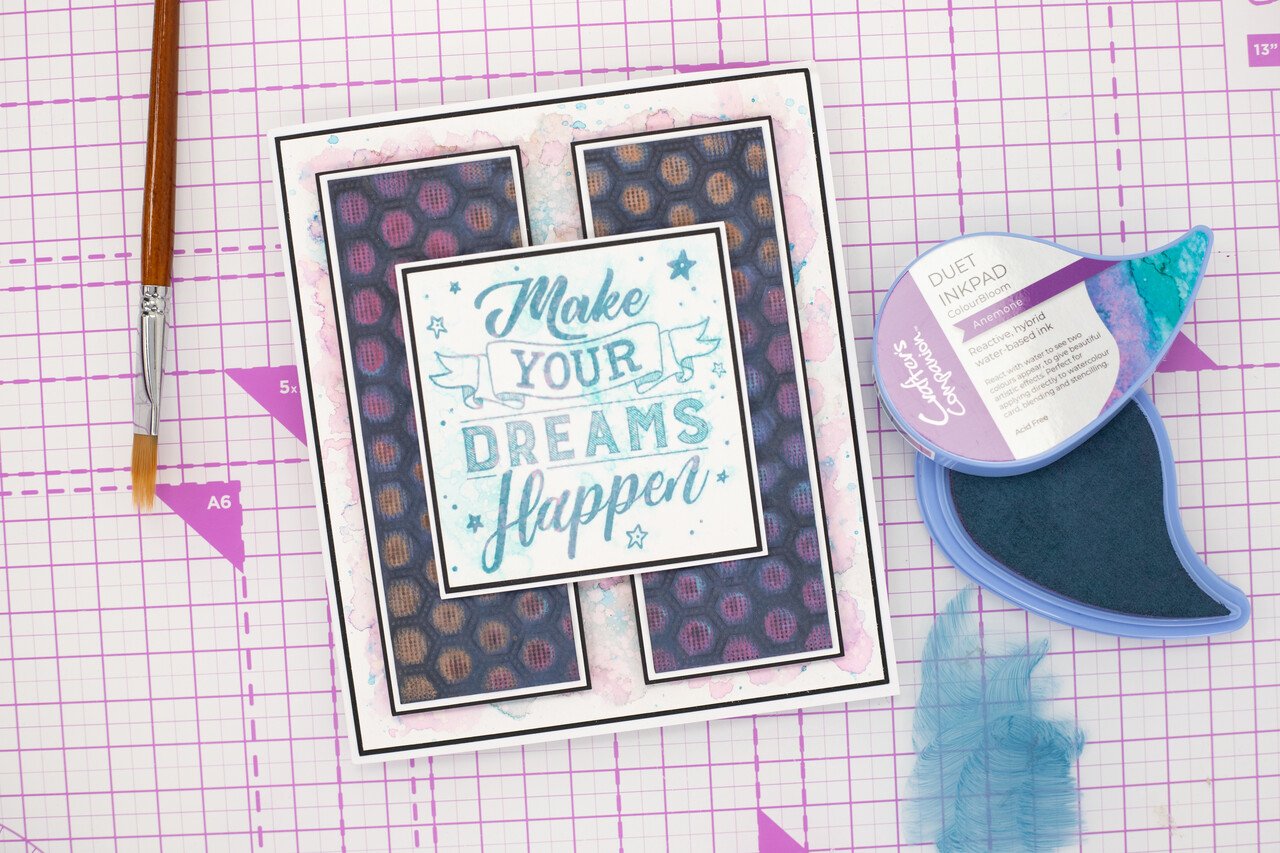 13"
5x
A6
Make
YOUR
DREAMS
Happen
DUET
INKPAD
ColourBloom
Anemone
Reactive, hybrid
water-based ink
React with water to see two
colours appear, to give beautiful
artistic effects. Perfect for
applying directly to watercolour
card, blending and stencilling.
Acid Free
Crafter's
Companion™